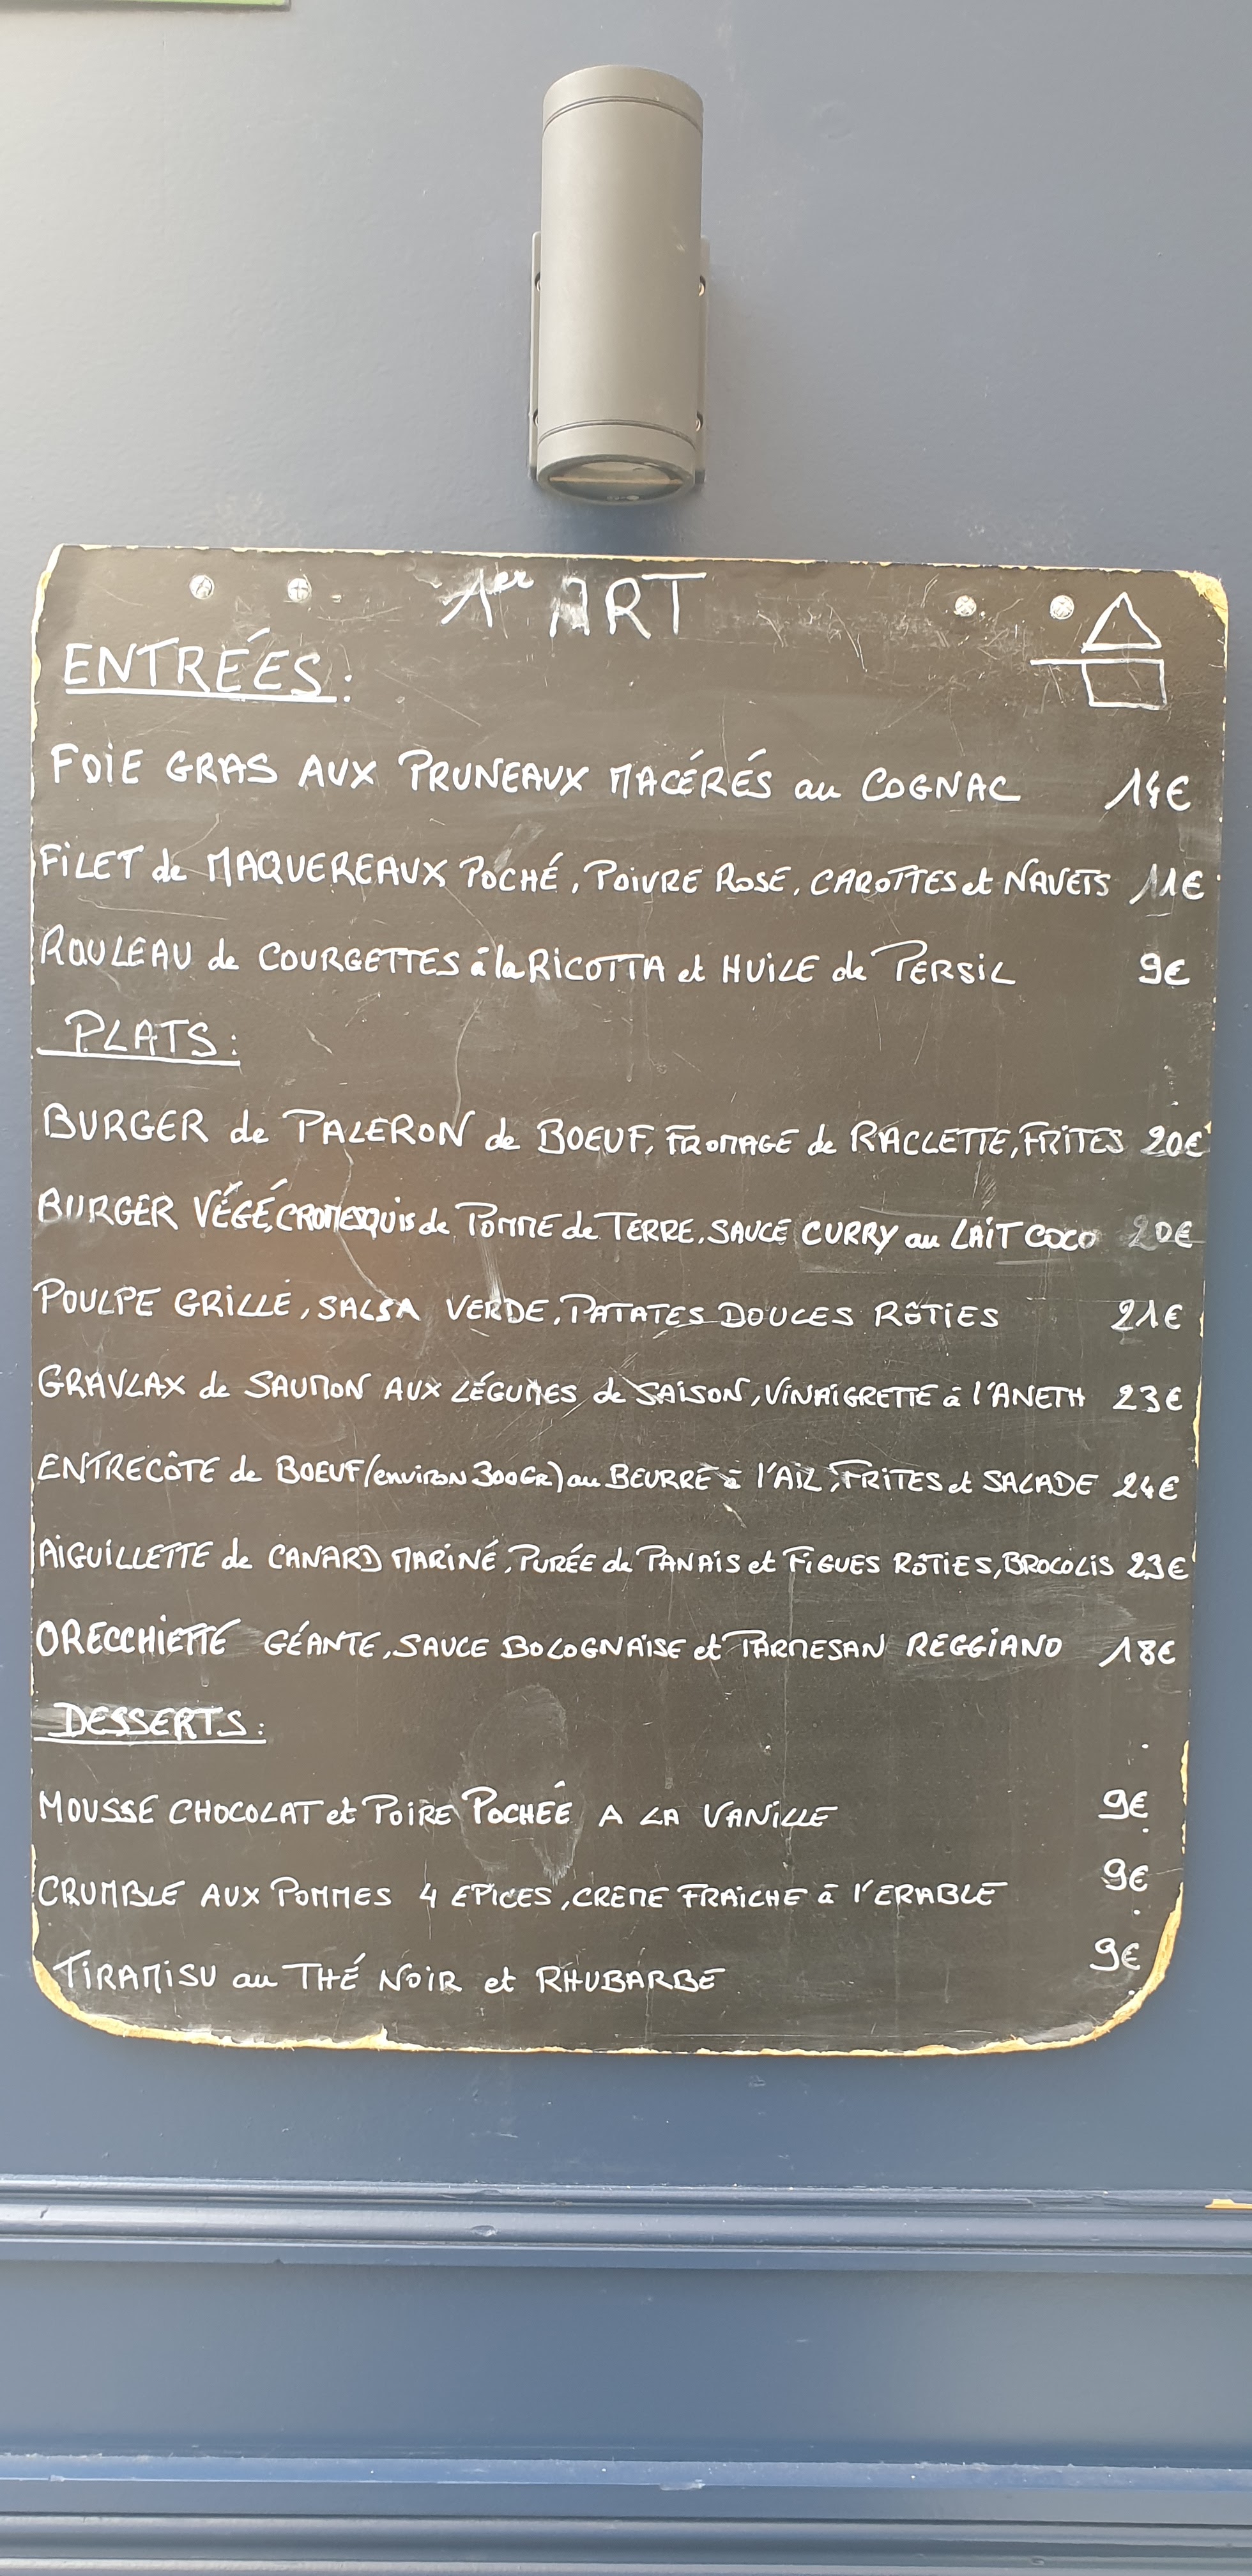 1er ART
ENTRÉES :
FOIE GRAS AUX PRUNEAUX MACÉRÉS au COGNAC 14€
FILET de MAQUEREAUX POCHÉ, POIVRE ROSE, CAROTTES et NAVETS 11€
ROULEAU de COURGETTES à la RICOTTA et HUILE de PERSIL 9€
PLATS :
BURGER de PALERON de BOEUF, FROMAGE de RACLETTE, FRITES 20€
BURGER VÉGÉ, CROMESQUIS de POMME de TERRE, SAUCE CURRY au LAIT COCO 20€
POULPE GRILLÉ, SALSA VERDE, PATATES DOUCES RÔTIES 21€
GRAVLAX de SAUMON AUX LÉGUMES de SAISON, VINAIGRETTE à l'ANETH 23€
ENTRECÔTE de BOEUF (environ 300GR) au BEURRE à l'AIL, FRITES et SALADE 24€
AIGUILLETTE de CANARD MARINÉ, PURÉE de PANAIS et FIGUES RÔTIES, BROCOLIS 23€
ORECCHIETTE GÉANTE, SAUCE BOLOGNAISE et PARMESAN REGGIANO 18€
DESSERTS :
MOUSSE CHOCOLAT et POIRE POCHÉE A LA VANILLE 9€
CRUMBLE AUX POMMES 4 EPICES, CREME FRAICHE à l'ERABLE 9€
TIRAMISU au THÉ NOIR et RHUBARBE 9€